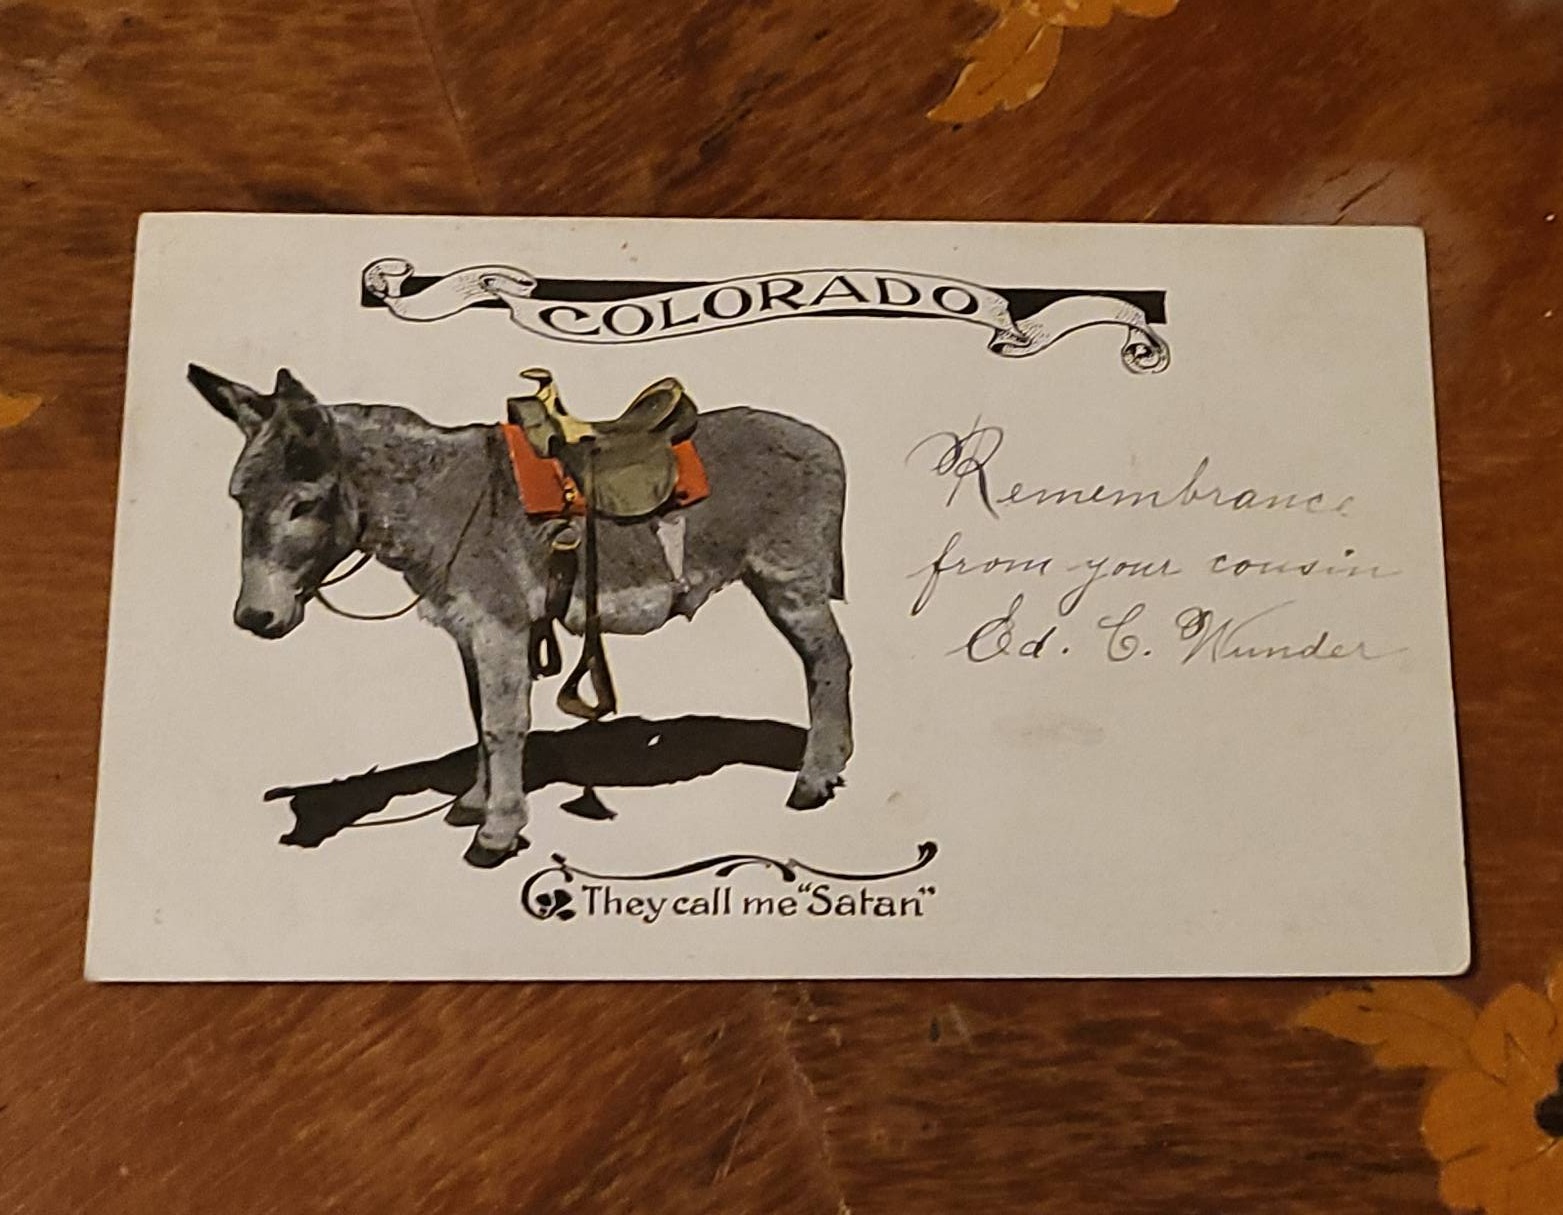 COLORADO
Remembrance
from your cousin
Ed. C. Wunder
They call me "Satan"